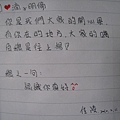 你是我們大家的開心果
有你在的地方,大家的嘴
角總是往上揚!
總之一句:
認識你真好^^